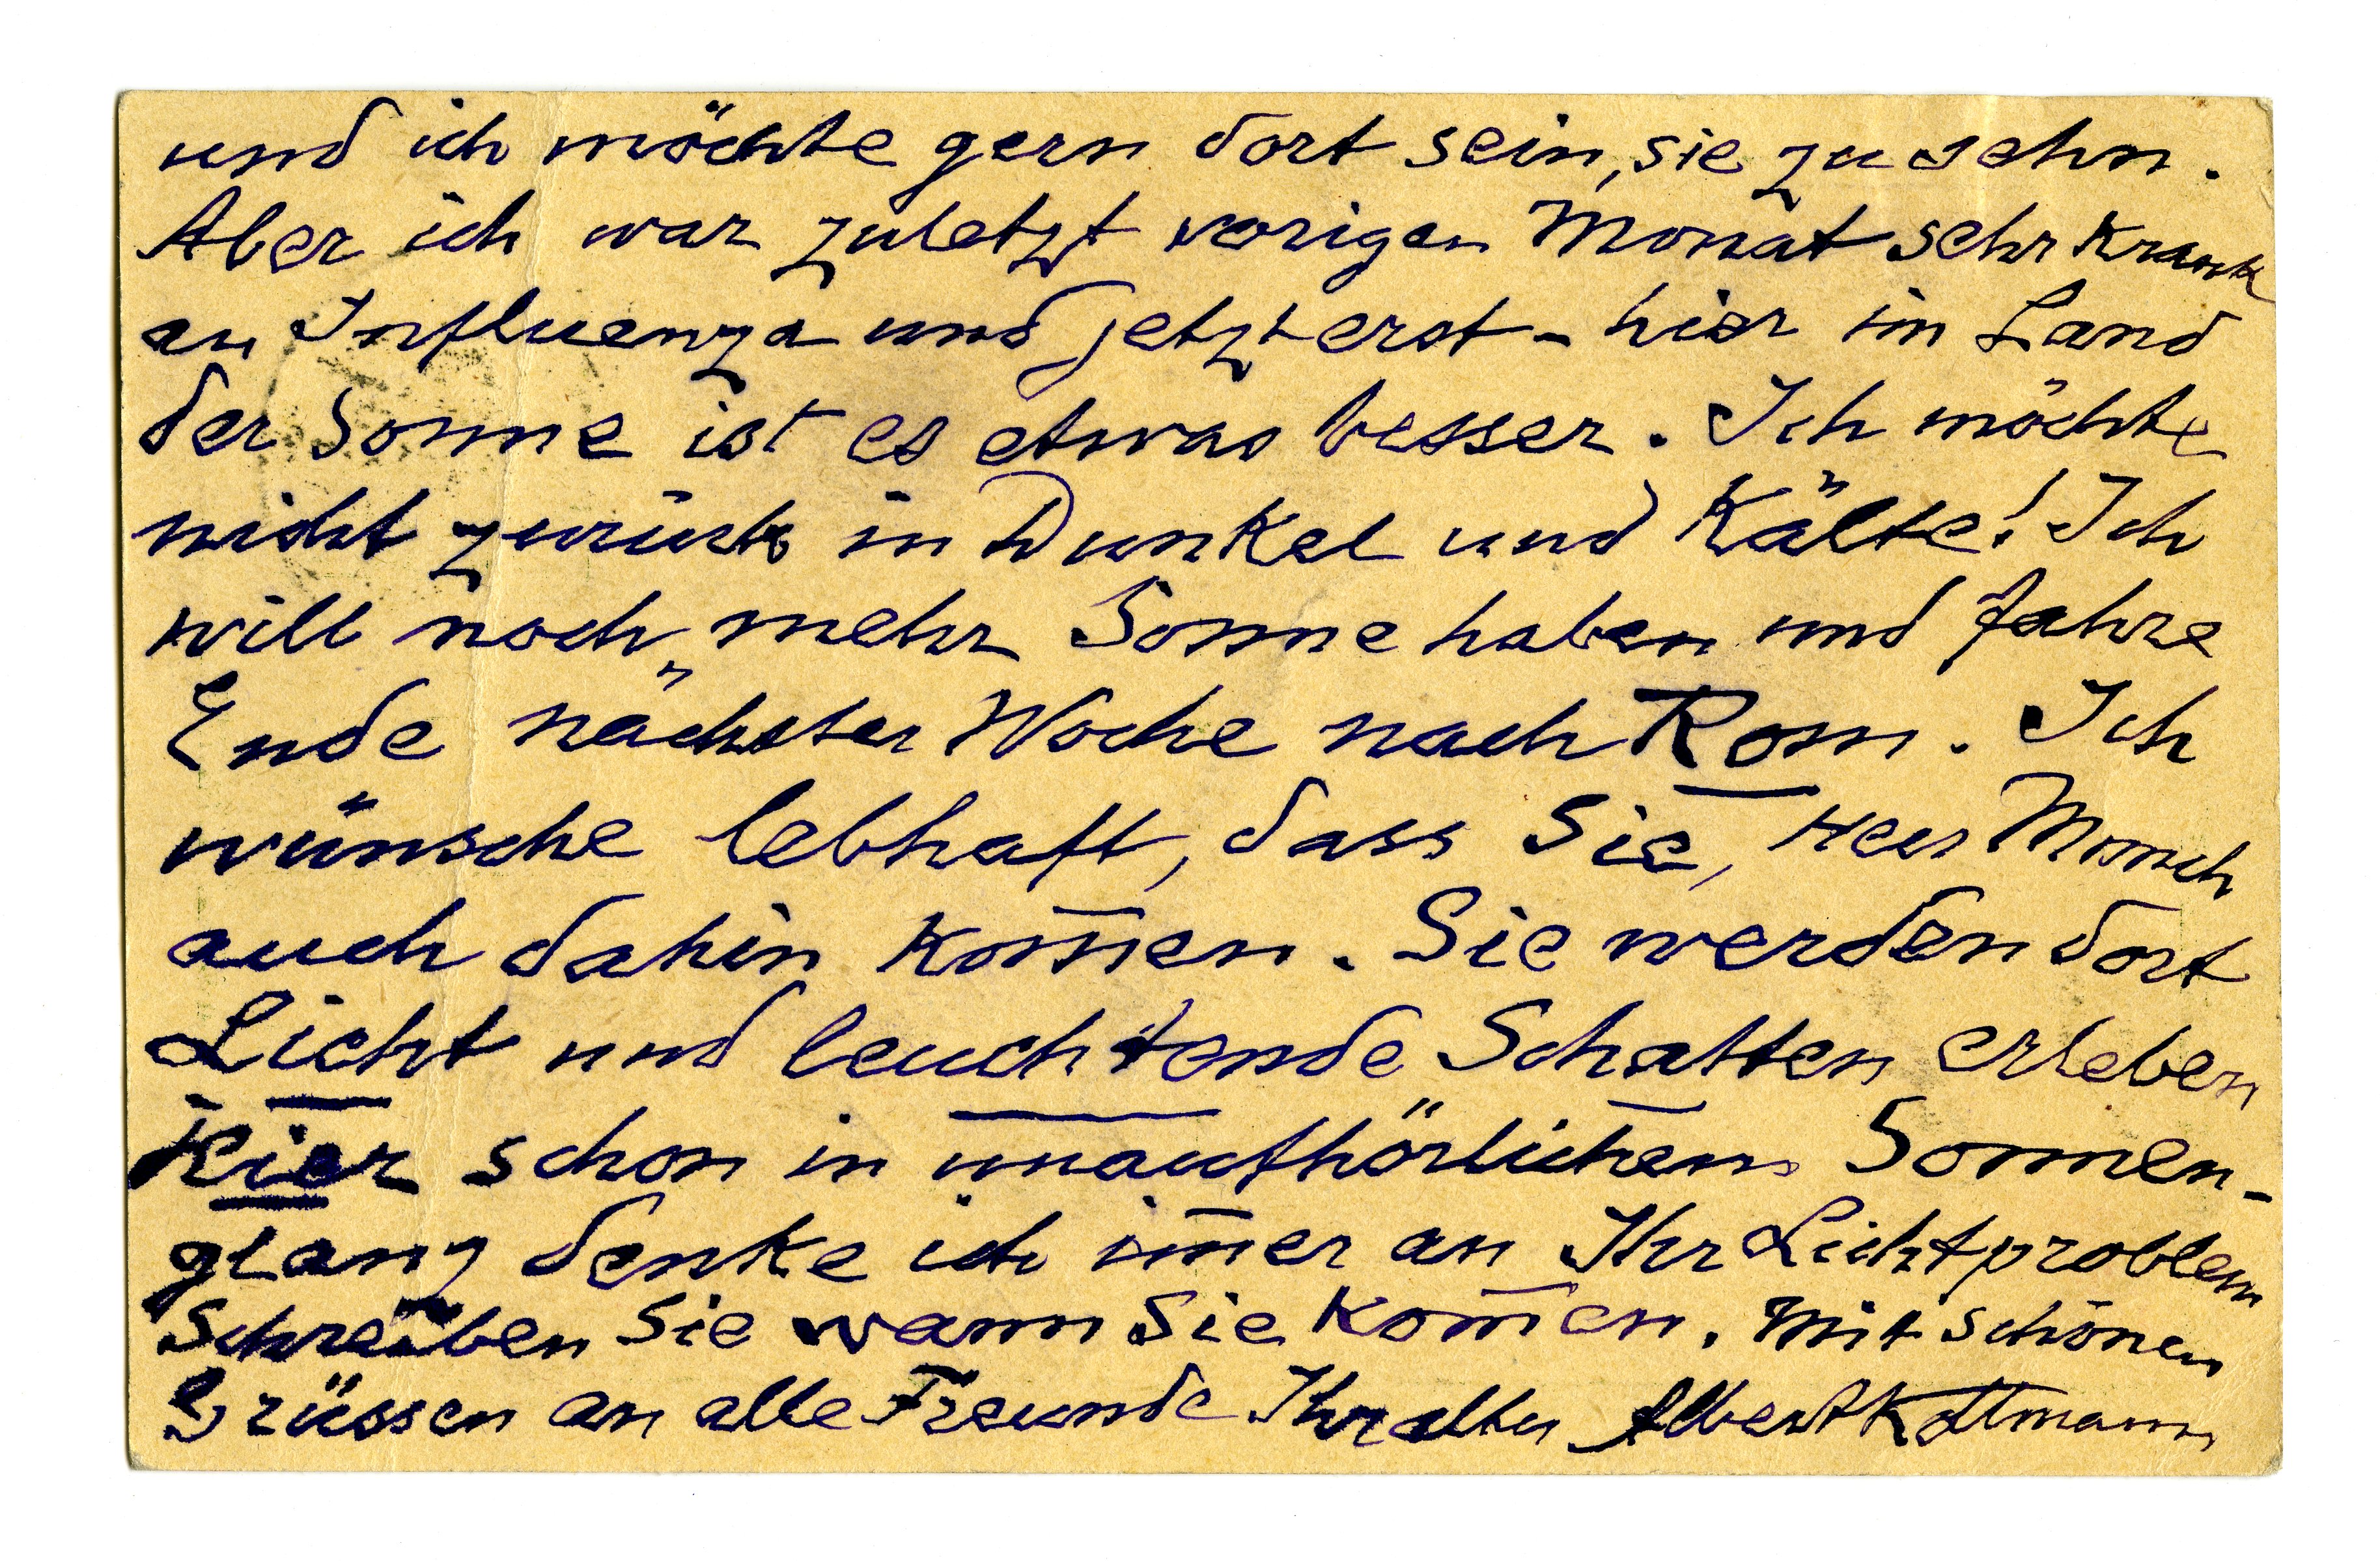 und ich möchte gern dort sein, sie zu sehn.
Aber ich war zuletzt vorigen Monat sehr krank
an Influenza und jetzt erst - hier im Land
der Sonne ist es etwas besser. Ich möchte
nicht zurück in Dunkel und Kälte! Ich
will noch mehr Sonne haben und fahre
Ende nächster Woche nach Rom. Ich
wünsche lebhaft, dass Sie, Herr Munch
auch dahin kom̅en. Sie werden dort
Licht und leuchtende Schatten erleben
Hier schon in unaufhörlichem Sonnen-
glanz denke ich im̅er an Ihr Lichtproblem
Schreiben Sie wann Sie kom̅en. Mit schönen
Grüssen an alle Freunde Ihr alter Albert Kollmann